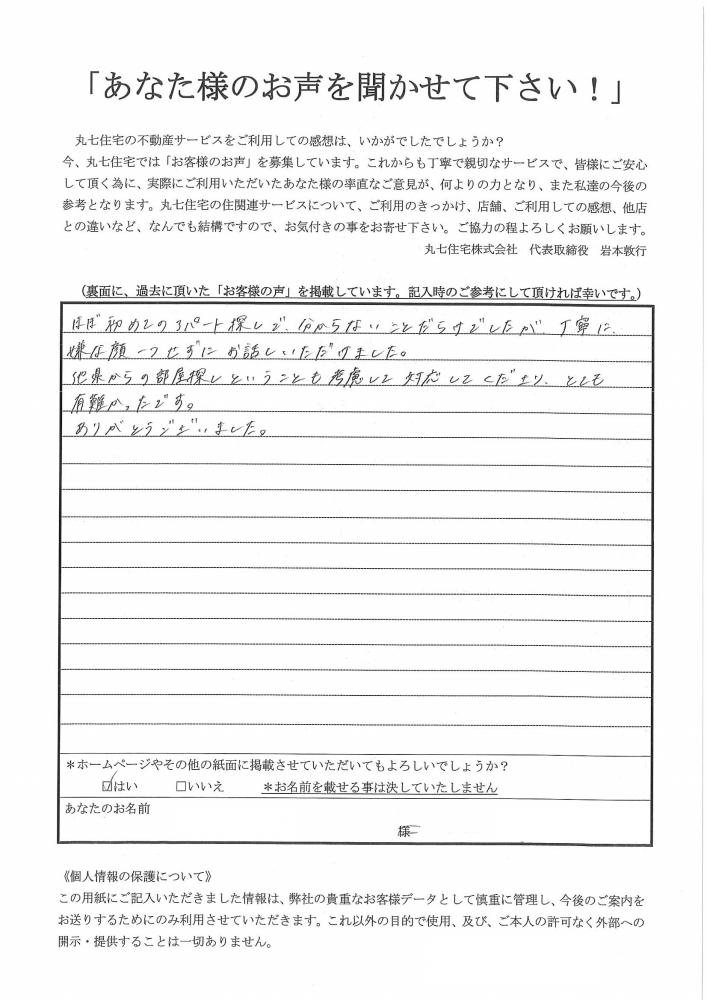 「あなた様のお声を聞かせて下さい！」
丸七住宅の不動産サービスをご利用しての感想は、いかがでしたでしょうか？
今、丸七住宅では「お客様のお声」を募集しています。これからも丁寧で親切なサービスで、皆様にご安心
して頂く為に、実際にご利用いただいたあなた様の率直なご意見が、何よりの力となり、また私達の今後の
参考となります。丸七住宅の住関連サービスについて、ご利用のきっかけ、店舗、ご利用しての感想、他店
との違いなど、なんでも結構ですので、お気付きの事をお寄せ下さい。ご協力の程よろしくお願いします。
丸七住宅株式会社　代表取締役　岩本敦行
（裏面に、過去に頂いた「お客様の声」を掲載しています。記入時のご参考にして頂ければ幸いです。）
ほぼ初めてのアパート探しで、分からないことだらけでしたが、丁寧に、
嫌な顔一つせずにお話しいただけました。
他県からの部屋探しということも考慮して対応してくださり、とても
有難かったです。
ありがとうございました。
＊ホームページやその他の紙面に掲載させていただいてもよろしいでしょうか？
☑はい　□いいえ　＊お名前を載せる事は決していたしません
あなたのお名前
様
《個人情報の保護について》
この用紙にご記入いただきました情報は、弊社の貴重なお客様データとして慎重に管理し、今後のご案内を
お送りするためにのみ利用させていただきます。これ以外の目的で使用、及び、ご本人の許可なく外部への
開示・提供することは一切ありません。